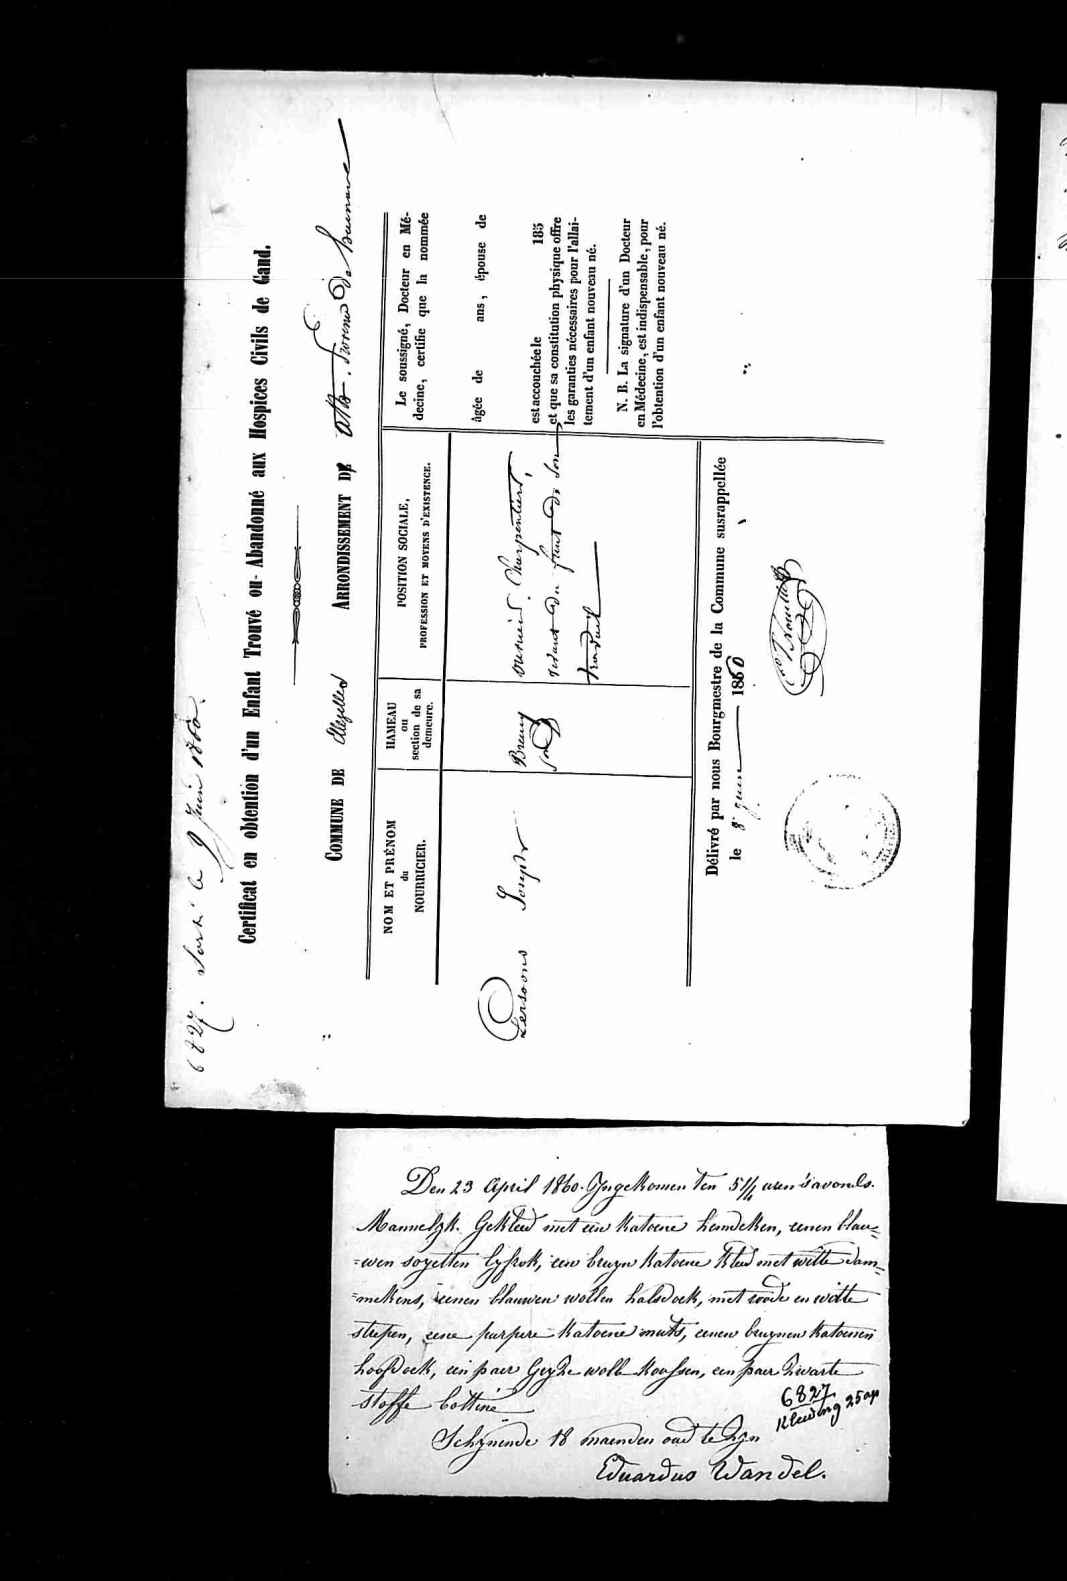 6827. Sorti le 9 Juin 1860.
Certificat en obtention d'un Enfant Trouvé ou Abandonné aux Hospices Civils de Gand.
COMMUNE DE Ellezelles ARRONDISSEMENT D' Ath. Province de hainaut
NOM ET PRÉNOM
du
NOURRICIER.
HAMEAU
ou
section de sa
demeure.
POSITION SOCIALE,
PROFESSION ET MOYENS D'EXISTENCE.
Le soussigné, Docteur en Mé-
decine, certifie que la nommée
Persoons Joseph
ouvrier Charpentier,
vivant du fruit de son
travail
âgée de ans, épouse de
est accouchée le 185
et que sa constitution physique offre
les garanties nécessaires pour l'allai-
tement d'un enfant nouveau né.
N. B. La signature d'un Docteur
en Médecine, est indispensable, pour
l'obtention d'un enfant nouveau né.
Délivré par nous Bourgmestre de la Commune susrappellée
le 8 juin 1860
Den 23 April 1860. Ingekomen ten 5 1/4 uren s'avonds.
Mannelyk. Gekleed met een katoene hemdeken, eenen blau=
=wen soyetten lyfrok, een bruyn katoene kleed met witte dam=
=mekens, eenen blauwen wollen halsdoek, met roode en witte
strepen, eene purpere katoene muts, eenen bruynen katoenen
hoofdoek, een paer gryze wolle koussen, een paer zwarte
stoffe bottine
6827
Kleeding 25 ap
Schynende 18 maenden oud te zyn
Eduardus Wandel.